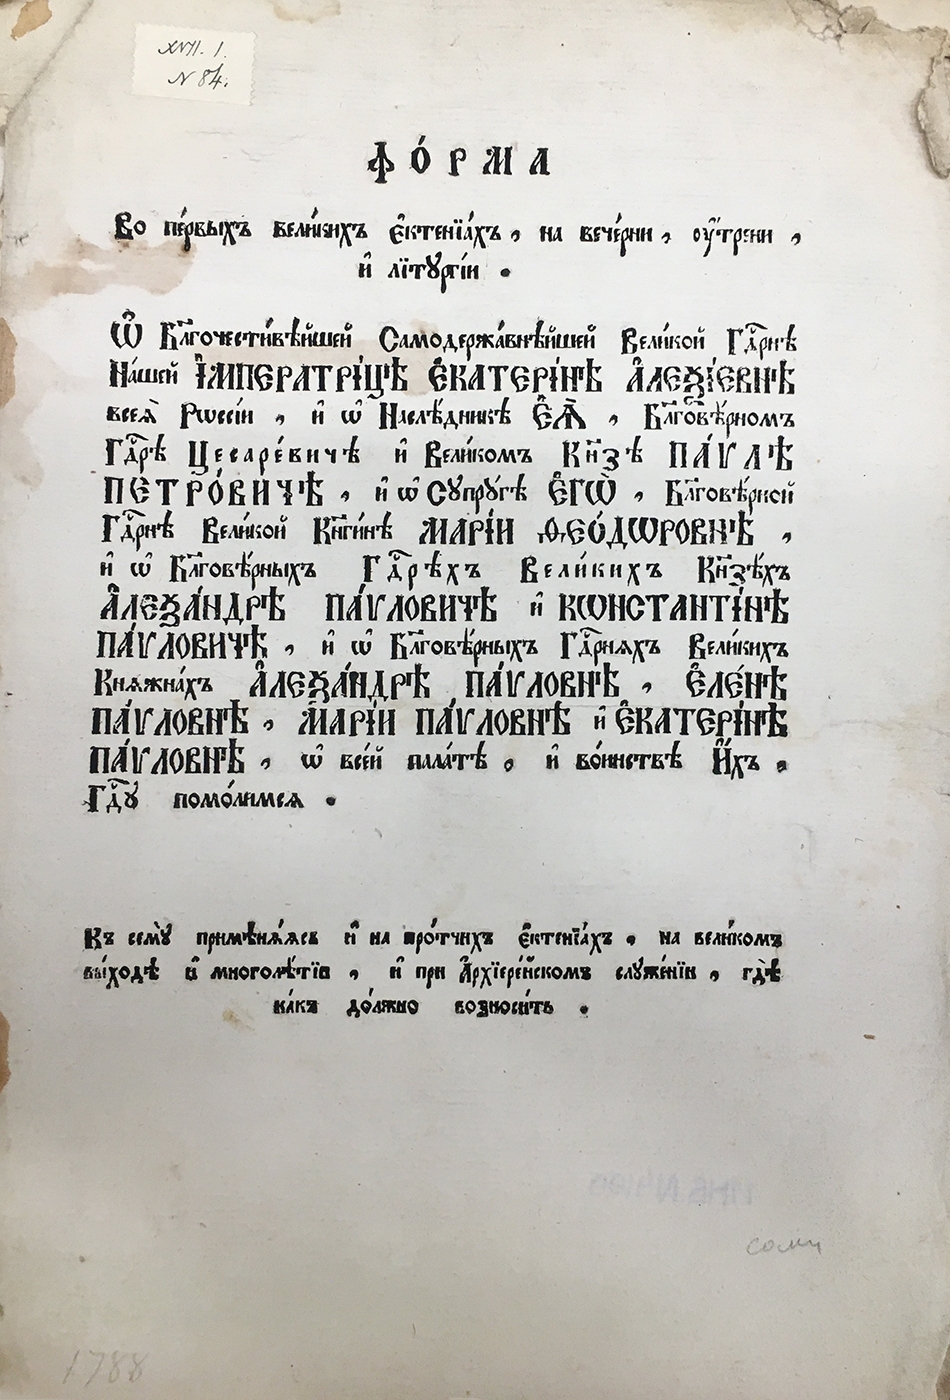 XVII. 1.
N 84.
ФО́РМА
Во пе́рвыхъ вели́кихъ є҆ктенїа́хъ, на вече́рни, оу҆́трени,
и҆ лїтꙋргі́и.
Ѽ Бл҃гочести́вѣйшей Самодержа́внѣйшей Вели́кой Гдⷭ҇рнѣ
На́шей І҆МПЕРАТРІ́ЦѢ Є҆КАТЕРІ́НѢ А҆ЛЕѮІ́ЕВНѢ
всеѧ̀ Рѡссі́и, и҆ ѽ Наслѣ́дникѣ Є҆Ѧ̀, Бл҃говѣ́рномъ
Гдⷭ҇рѣ Цесаре́вичѣ и҆ Вели́комъ Кн҃зѣ ПА́ѴЛѢ
ПЕТРО́ВИЧѢ, и҆ ѽ Сꙋпрꙋ́гѣ Є҆ГѠ̀, Бл҃говѣ́рной
Гдⷭ҇рнѣ Вели́кой Кн҃ги́нѣ МАРІ́И Ѳ҆ЕО́ДѠРОВНѢ,
и҆ ѽ Бл҃говѣ́рныхъ Гдⷭ҇рѣхъ Вели́кихъ Кн҃зѣ́хъ
А҆ЛЕѮА́НДРѢ ПА́ѴЛОВИЧѢ и҆ КѠНСТАНТІ́НѢ
ПА́ѴЛОВИЧѢ, и҆ ѽ Бл҃говѣ́рныхъ Гдⷭ҇рнѧхъ Вели́кихъ
Кнѧжна́хъ А҆ЛЕѮА́НДРѢ ПА́ѴЛОВНѢ, Є҆ЛЕ́НѢ
ПА́ѴЛОВНѢ, МАРІ́И ПА́ѴЛОВНѢ и҆ Є҆КАТЕРІ́НѢ
ПА́ѴЛОВНѢ, ѽ все́й пала́тѣ, и҆ во́инствѣ И҆́хъ,
Гдⷭ҇ꙋ помо́лимсѧ.
Къ семꙋ̀ примѣнѧ́ѧсь и҆ на про́тчихъ є҆ктенїа́хъ, на вели́комъ
вы́ходѣ и҆ многолѣ́тїи, и҆ при А҆рхїере́йскомъ слꙋже́нїи, гдѣ̀
ка́къ до́лжно возноси́ть.
1788